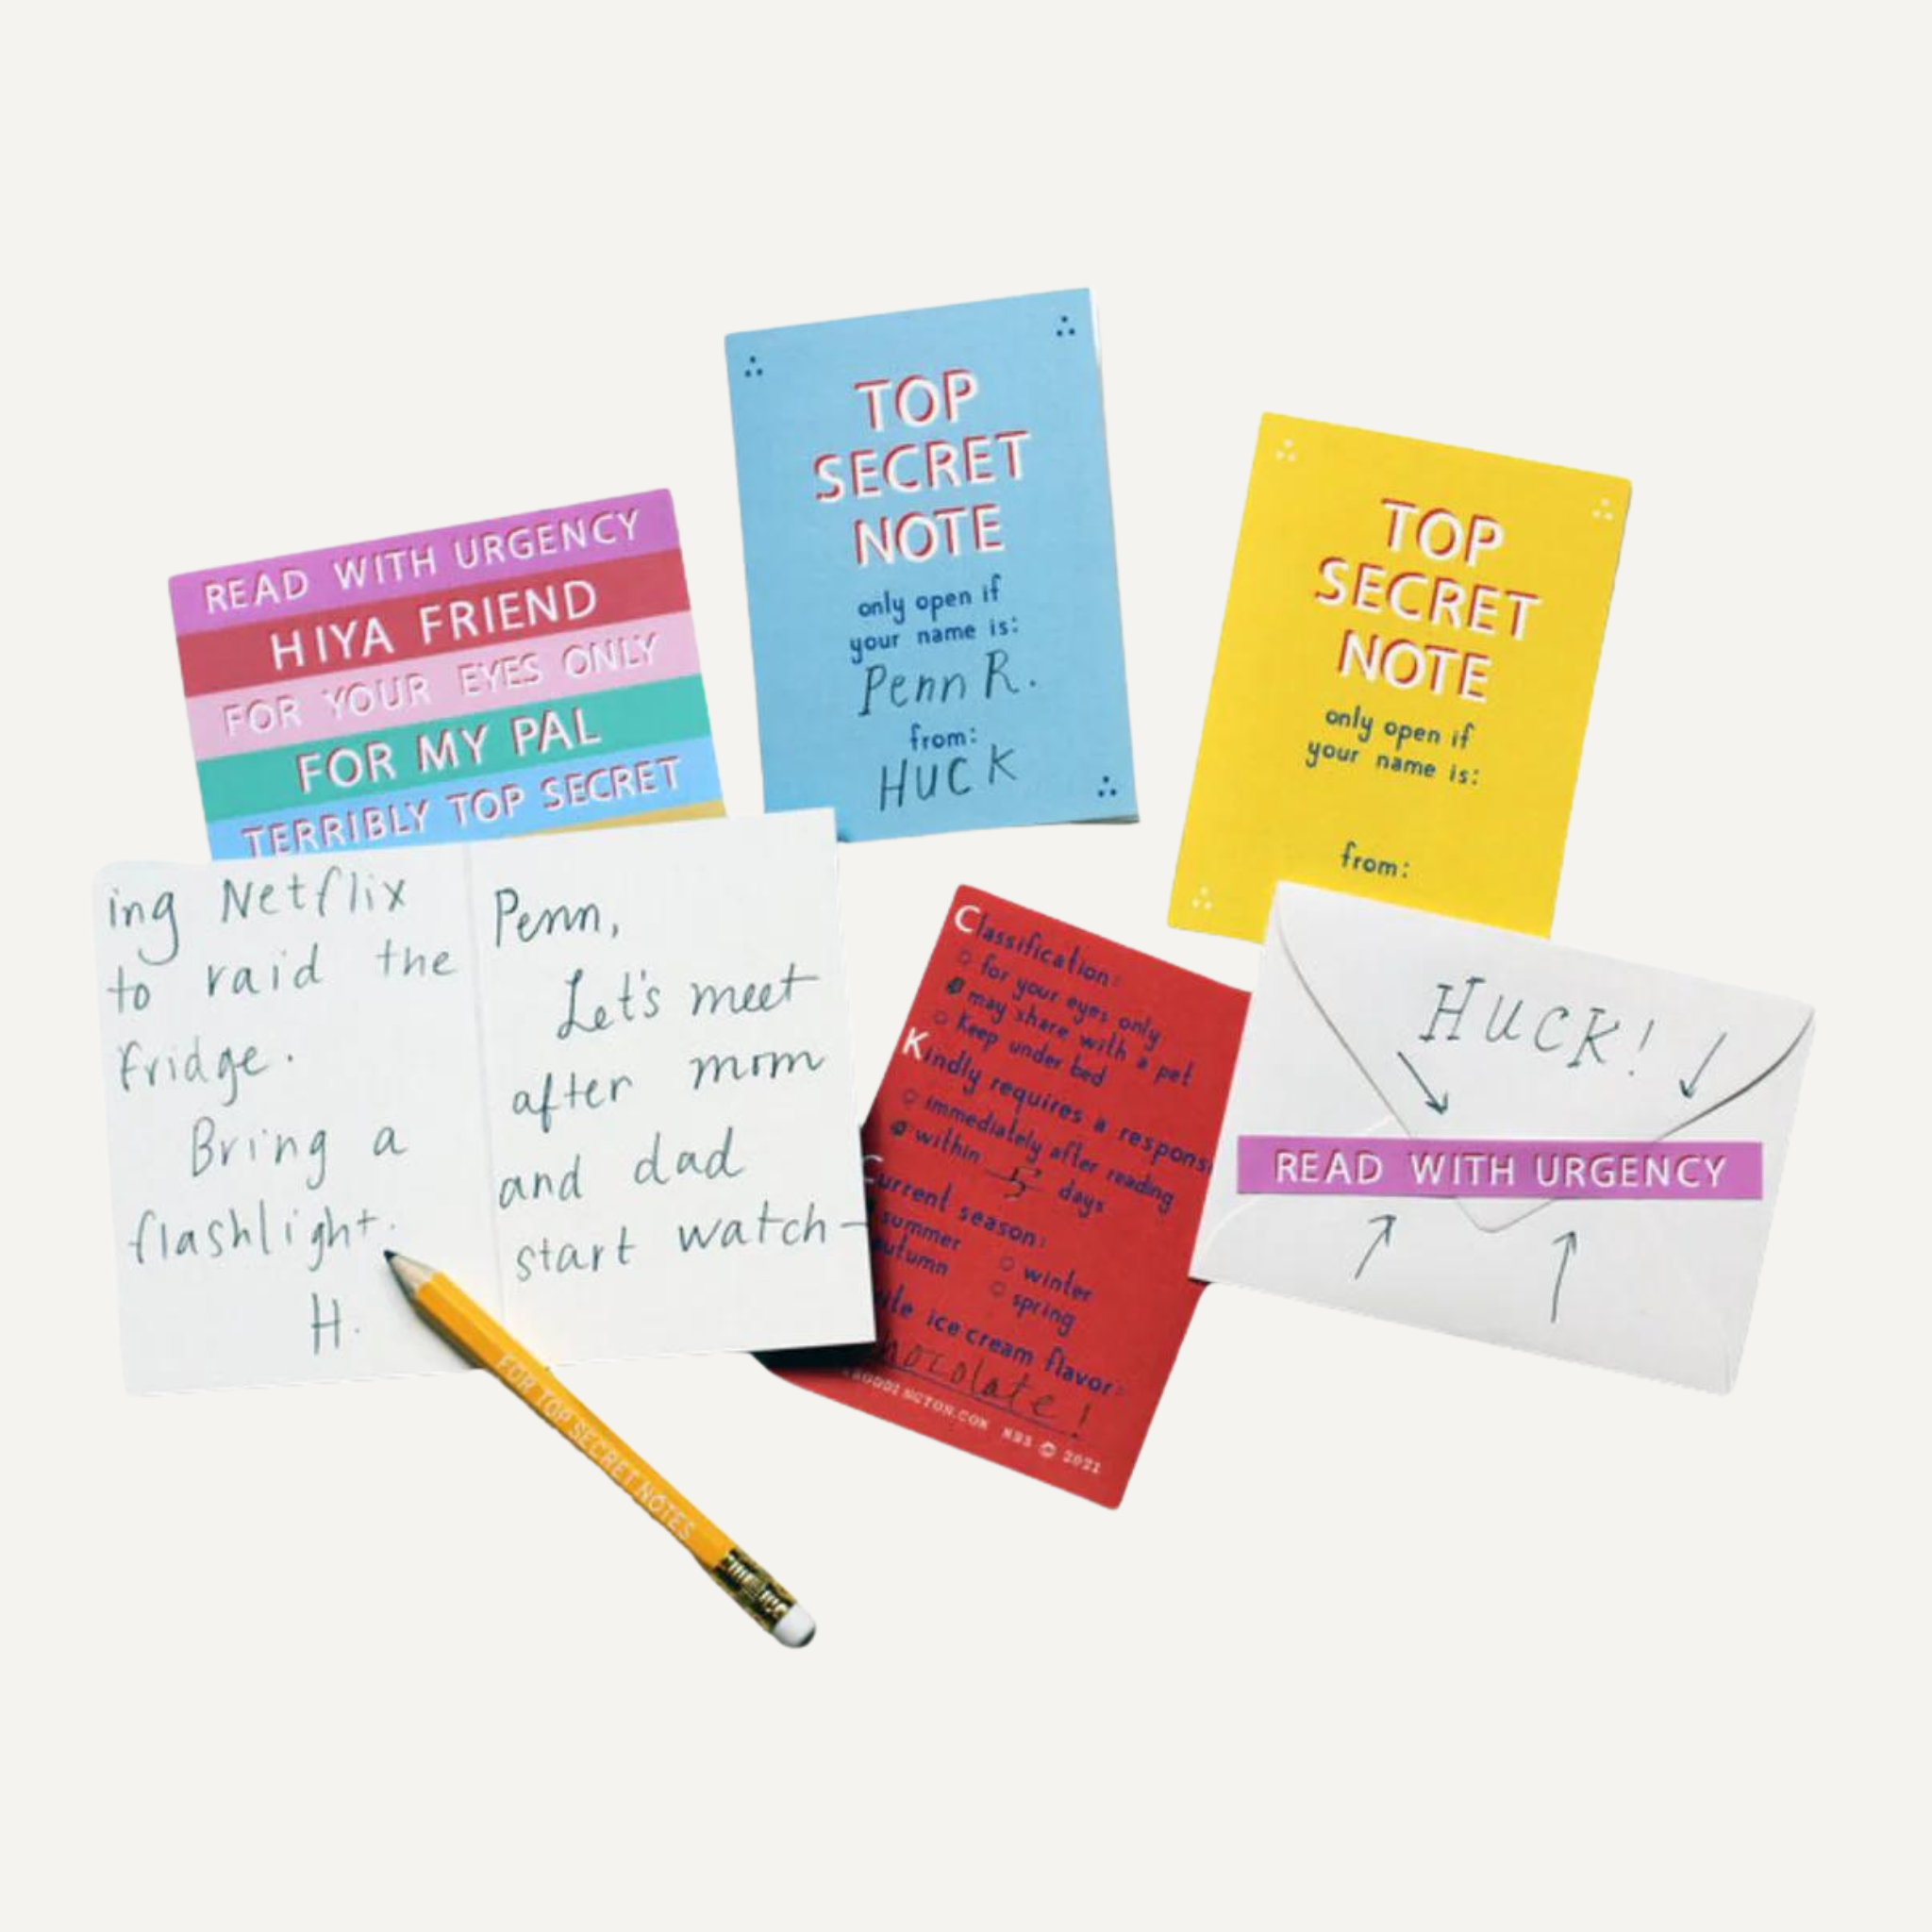 READ WITH URGENCY
HIYA FRIEND
FOR YOUR EYES ONLY
FOR MY PAL
TERRIBLY TOP SECRET
TOP
SECRET
NOTE
only open if
your name is:
Penn R.
from:
HUCK
TOP
SECRET
NOTE
only open if
your name is:
from:
ing Netflix
to raid the
fridge.
Bring a
flashlight.
H.
Penn,
Let's meet
after mom
and dad
start watch-
FOR TOP SECRET NOTES
Classification:
for your eyes only
may share with a pet
keep under bed
Kindly requires a respons
immediately after reading
within 5 days
Current season:
summer
autumn
winter
spring
ice cream flavor:
hocolate!
MBS © 2021
HUCK!
READ WITH URGENCY